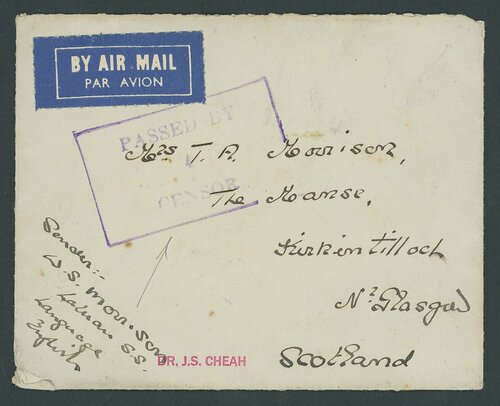 BY AIR MAIL
PAR AVION
PASSED BY
CENSOR
Mrs T. A. Morrison,
The Manse,
Kirkintilloch
Nr Glasgow
Scotland
Sender:-
W.S. Morrison
SS.
Language
English
DR. J.S. CHEAH